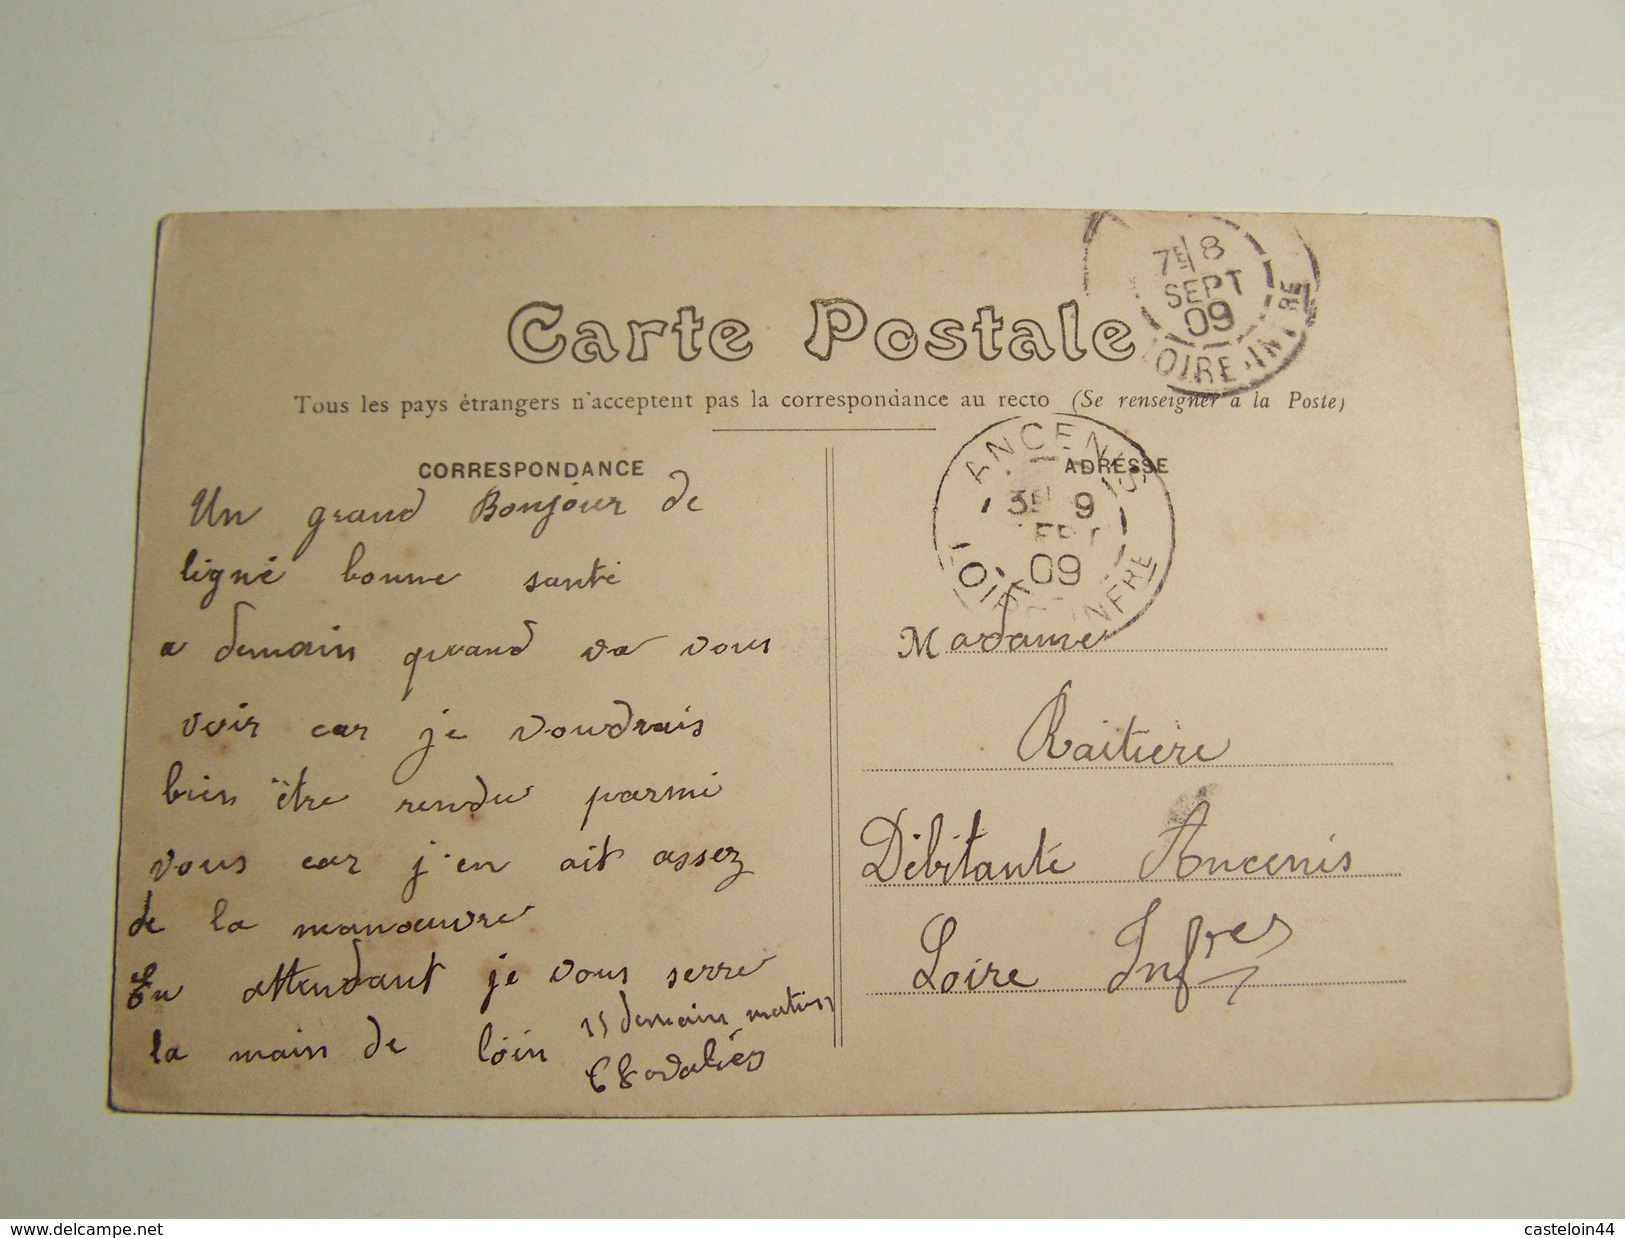 Carte Postale
Tous les pays étrangers n'acceptent pas la correspondance au recto (Se renseigner à la Poste)
7E 8
SEPT
09
OIRE-INFRE
CORRESPONDANCE
Un grand Bonjour de
ligné bonne santé
a demain quand va vous
voir car je voudrais
bien être rendu parmi
vous car j'en ait assez
de la manœuvre
En attendant je vous serre
la main de loin
demain matin
ADRESSE
ANCENIS
3E 9
09
LOIRE INFRE
Madame
Raitiere
Débitante Ancenis
Loire Infres
www.delcampe.net
casteloin44